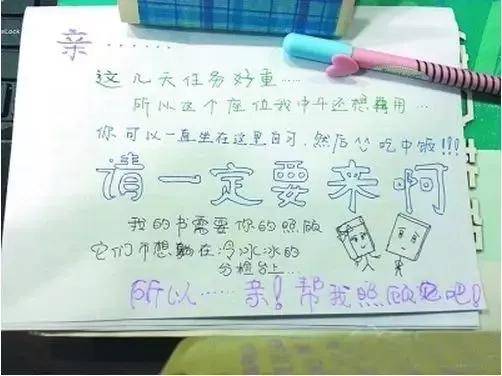 亲……
这几天任务好重……
所以这个座位我中午还想再用…
你可以一直坐在这里自习,然后吃中饭!!!
请一定要来啊
我的书需要你的照顾
它们不想躺在冷冰冰的
分检台上…
所以……亲!帮我照顾吧!